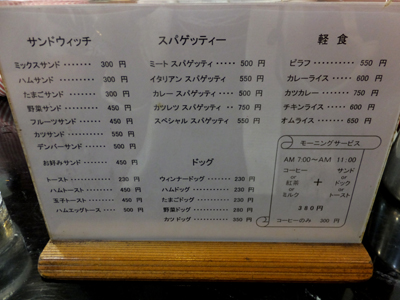 サンドウィッチ
ミックスサンド ········ 300 円
ハムサンド ·········· 300 円
たまごサンド ········ 300 円
野菜サンド ·········· 450 円
フルーツサンド ······ 450 円
カツサンド ·········· 550 円
デンバーサンド ······ 500 円
お好みサンド ········ 450 円
トースト ············ 230 円
ハムトースト ········ 450 円
玉子トースト ········ 450 円
ハムエッグトース ···· 500 円
スパゲッティー
ミート スパゲッティ ····· 500 円
イタリアン スパゲッティ · 550 円
カレー スパゲッティ ····· 500 円
カツレツ スパゲッティ ·· 750 円
スペシャル スパゲッティ · 550 円
ドッグ
ウィンナードッグ ······· 230 円
ハムドッグ ············ 230 円
たまごドッグ ·········· 230 円
野菜ドッグ ············ 280 円
カツ ドッグ ··········· 350 円
軽 食
ピラフ ············ 550 円
カレーライス ······ 600 円
カツカレー ········ 750 円
チキンライス ······ 600 円
オムライス ········ 650 円
モーニングサービス
AM 7:00～AM 11:00
コーヒー サンド
or or
紅茶 + ドック
or or
ミルク トースト
380円
コーヒーのみ 300 円